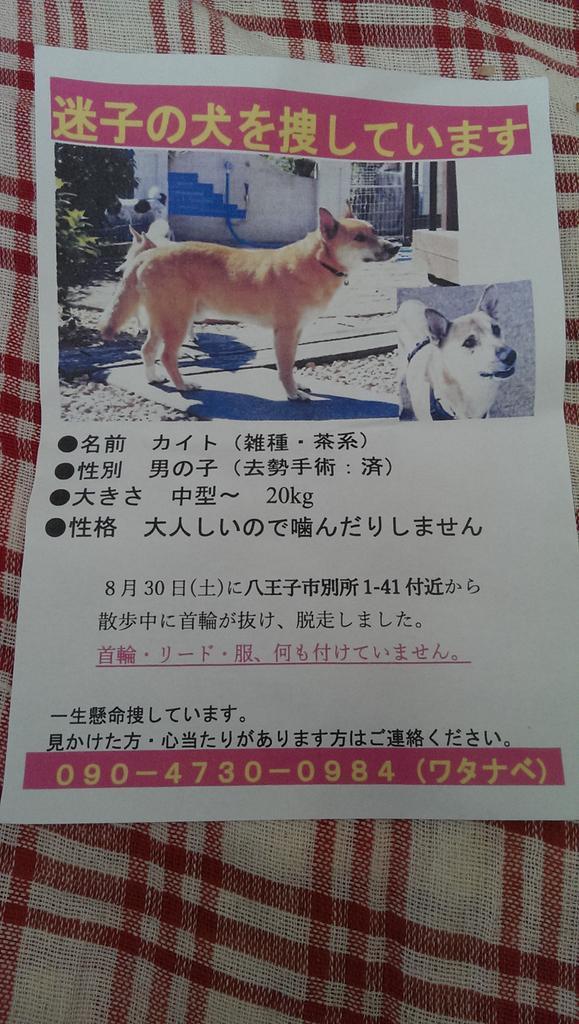 迷子の犬を捜しています
●名前　カイト（雑種・茶系）
●性別　男の子（去勢手術：済）
●大きさ　中型～　20kg
●性格　大人しいので噛んだりしません
８月30日(土)に八王子市別所1-41付近から
散歩中に首輪が抜け、脱走しました。
首輪・リード・服、何も付けていません。
一生懸命捜しています。
見かけた方・心当たりがあります方はご連絡ください。
０９０－４７３０－０９８４（ワタナベ）